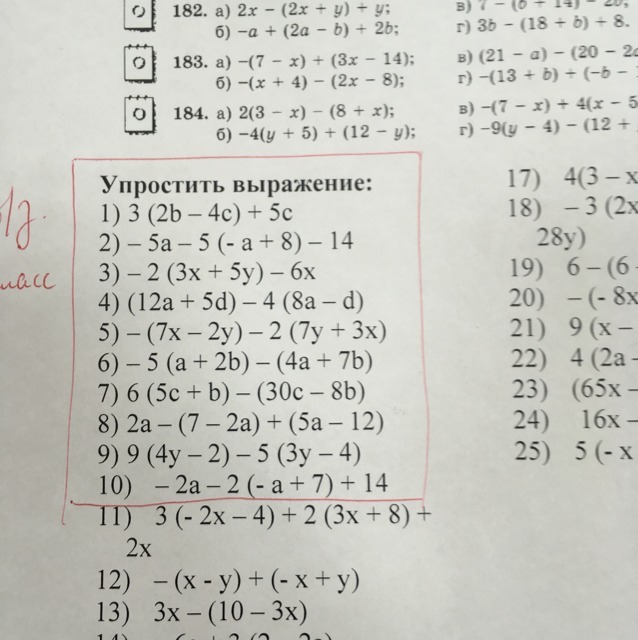 182. а) 2x − (2x + y) + y;
б) −a + (2a − b) + 2b;
г) 3b − (18 + b) + 8.
183. а) −(7 − x) + (3x − 14);
б) −(x + 4) − (2x − 8);
в) (21 − a) − (20 − 2a
г) −(13 + b) + (−b −
184. а) 2(3 − x) − (8 + x);
б) −4(y + 5) + (12 − y);
в) −(7 − x) + 4(x − 5
г) −9(y − 4) − (12 +
Упростить выражение:
1) 3 (2b – 4c) + 5c
2) – 5a – 5 (- a + 8) – 14
3) – 2 (3x + 5y) – 6x
4) (12a + 5d) – 4 (8a – d)
5) – (7x – 2y) – 2 (7y + 3x)
6) – 5 (a + 2b) – (4a + 7b)
7) 6 (5c + b) – (30c – 8b)
8) 2a – (7 – 2a) + (5a – 12)
9) 9 (4y – 2) – 5 (3y – 4)
10) – 2a – 2 (- a + 7) + 14
11) 3 (- 2x – 4) + 2 (3x + 8) +
2x
12) – (x - y) + (- x + y)
13) 3x – (10 – 3x)
17) 4(3 – x
18) – 3 (2x
28y)
19) 6 – (6
20) – (- 8x
21) 9 (x –
22) 4 (2a –
23) (65x –
24) 16x –
25) 5 (- x